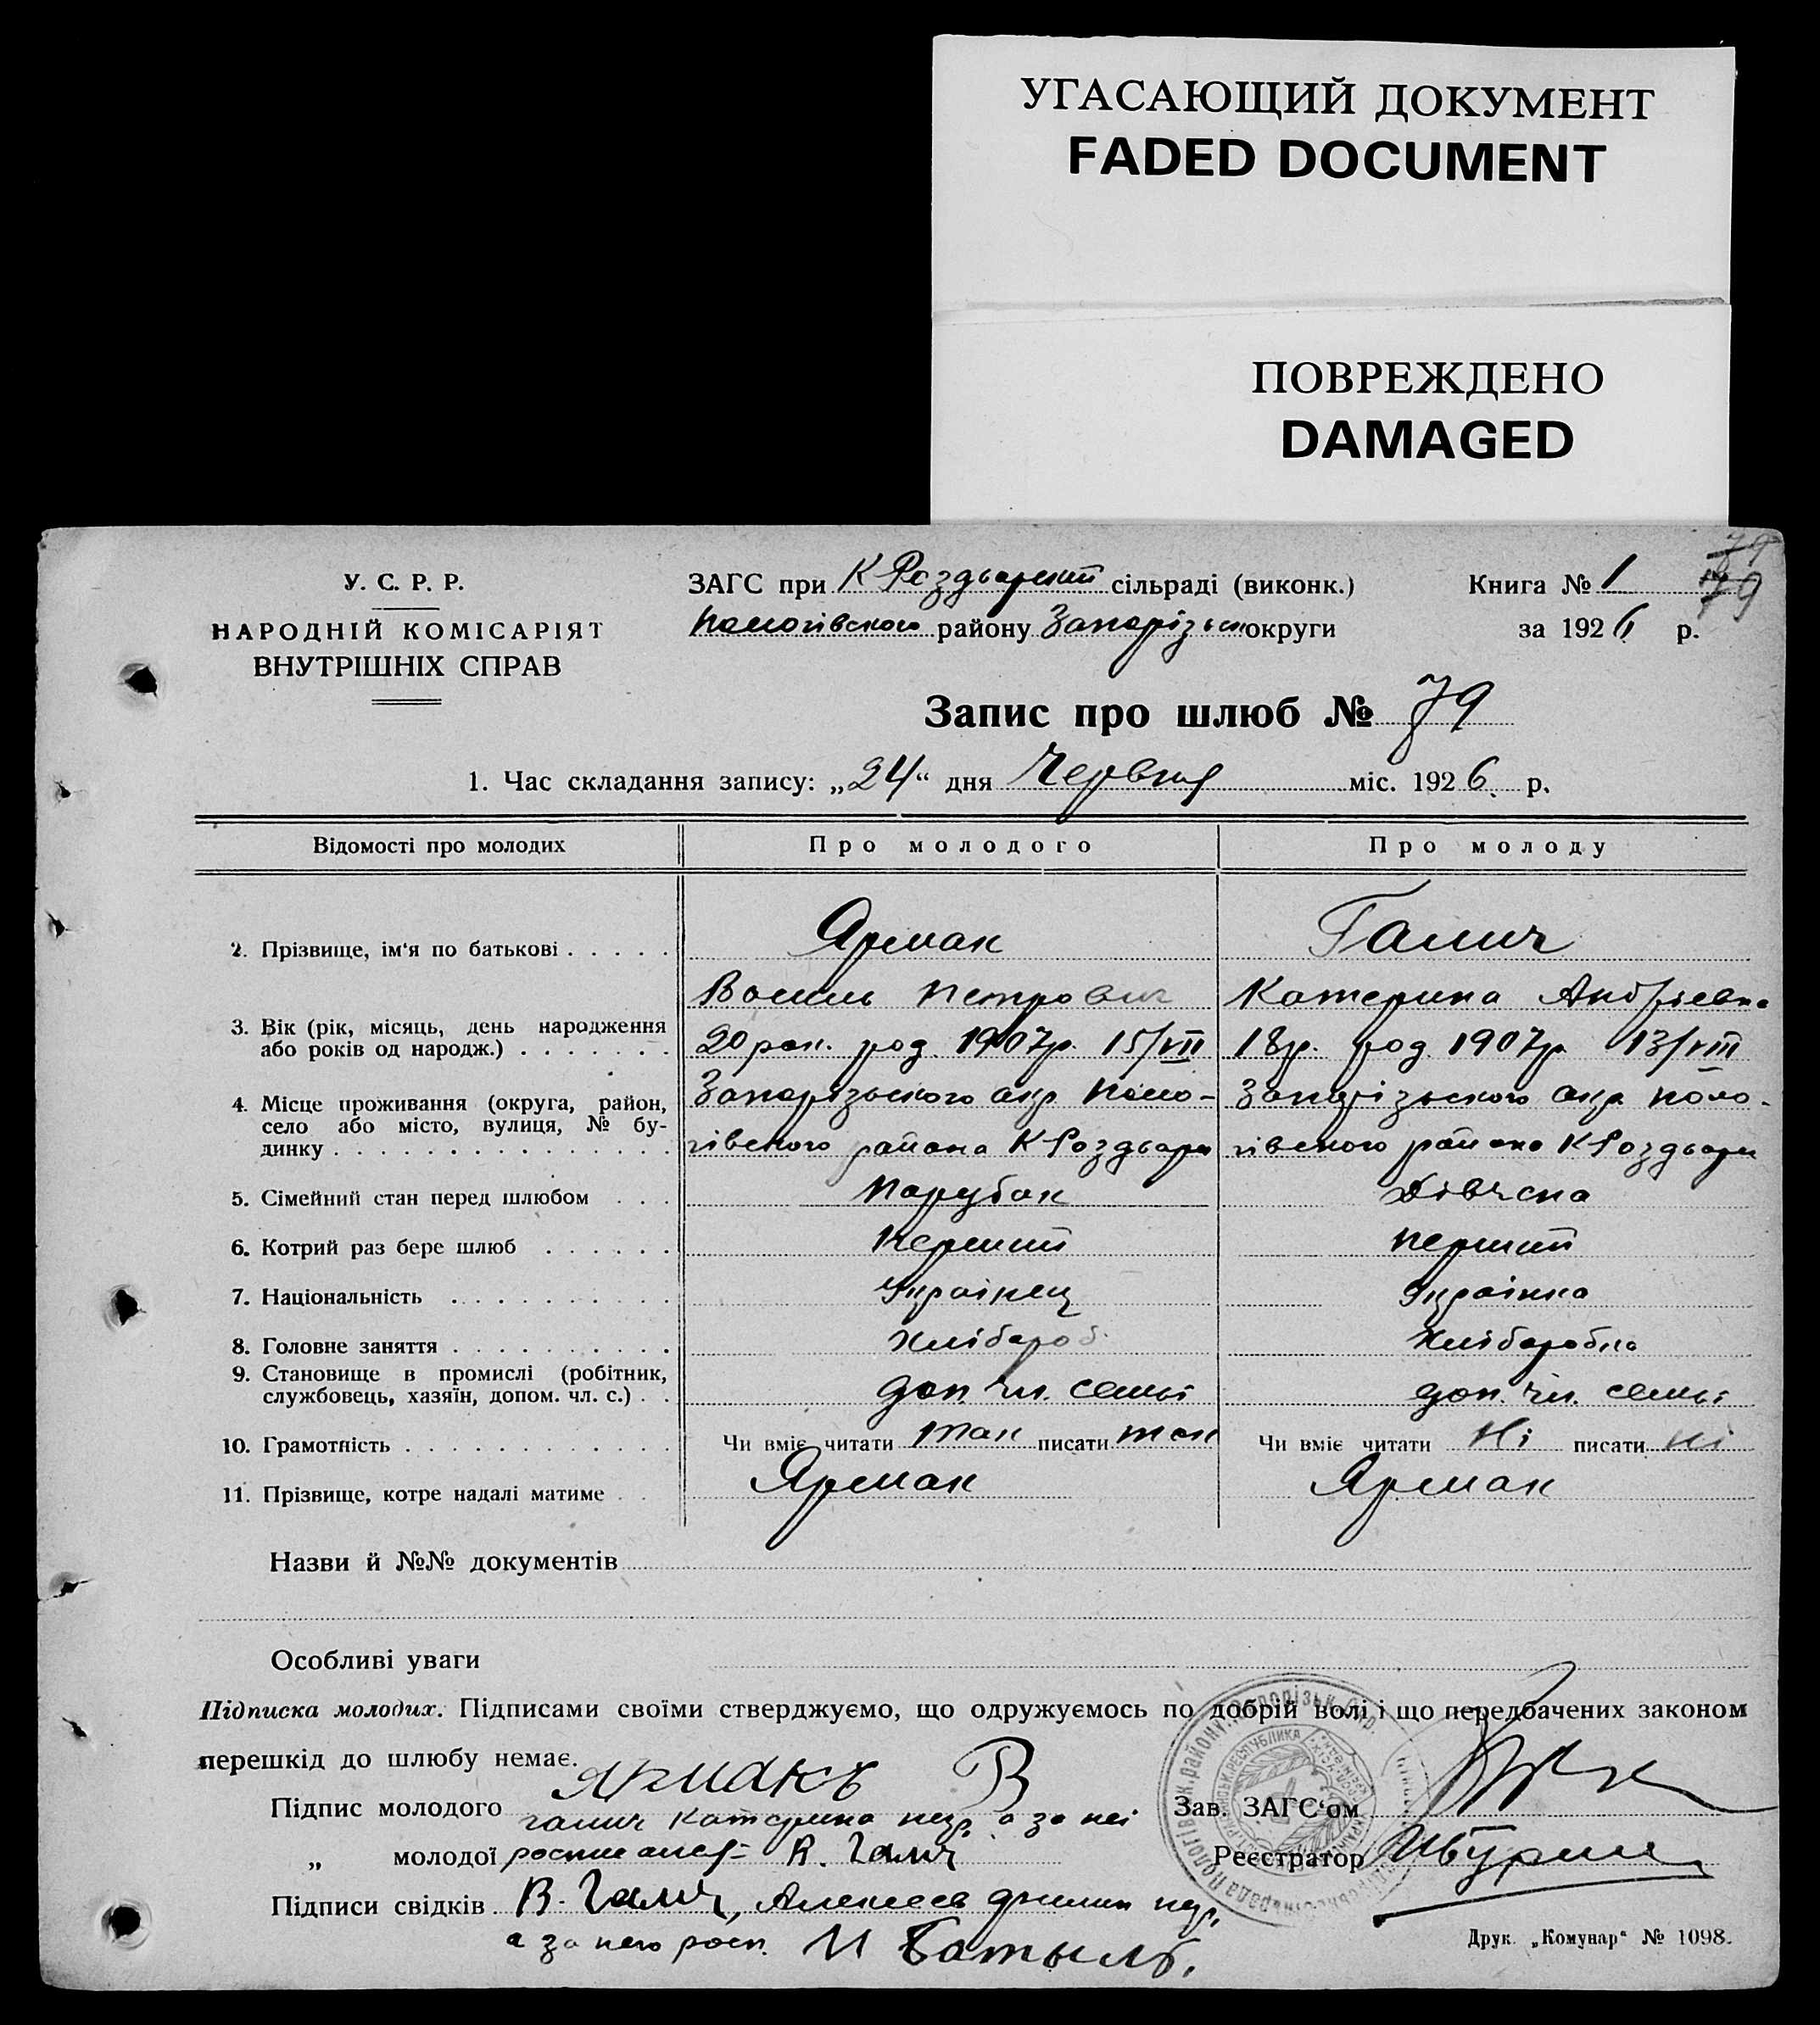 УГАСАЮЩИЙ ДОКУМЕНТ
FADED DOCUMENT
ПОВРЕЖДЕНО
DAMAGED
79
79
У. С. Р. Р.
НАРОДНІЙ КОМІСАРІЯТ
ВНУТРІШНІХ СПРАВ
ЗАГС при К Роздорский сільраді (виконк.)
Пологівского району Запорізьк округи
Книга № 1
за 1926 р.
Запис про шлюб № 79
1. Час складання запису: „24“ дня Червня міс. 1926 р.
Відомості про молодих Про молодого Про молоду
2. Прізвище, ім‘я по батькові Ярмак Галич
Василь Петрович Катерина Андріевна
3. Вік (рік, місяць, день народження
або років од народж.) 20 рок. род. 1907р. 15/VII 18р. род 1907р 13/VIII
4. Місце проживання (округа, район,
село або місто, вулиця, № бу-
динку
Запорізького окр. Поло- Запорізького окр. Поло-
гівского района К Роздори гівского района К Роздори
5. Сімейний стан перед шлюбом Парубок Дівчена
6. Котрий раз бере шлюб Перший Перший
7. Національність Украінец Украінка
8. Головне заняття Хлібороб. Хліборобка
9. Становище в промислі (робітник,
службовець, хазяїн, допом. чл. с.) доп. чл. семьі доп. чл. семьі
10. Грамотність Чи вміє читати так писати так Чи вміє читати Ні писати ні
11. Прізвище, котре надалі матиме Ярмак Ярмак
Назви й №№ документів
Особливі уваги
Підписка молодих. Підписами своїми стверджуємо, що одружуємось по добрій волі і що передбачених законом
перешкід до шлюбу немає.
Підпис молодого Ярмакъ В
Галич Катерина негр. а за неі
„ молодої В. Галич
Підписи свідків В. Галич, Алексеев негр.
а за него росп. И Батыль.
Зав. ЗАГС‘ом
Реєстратор
Друк. „Комунар“ № 1098.